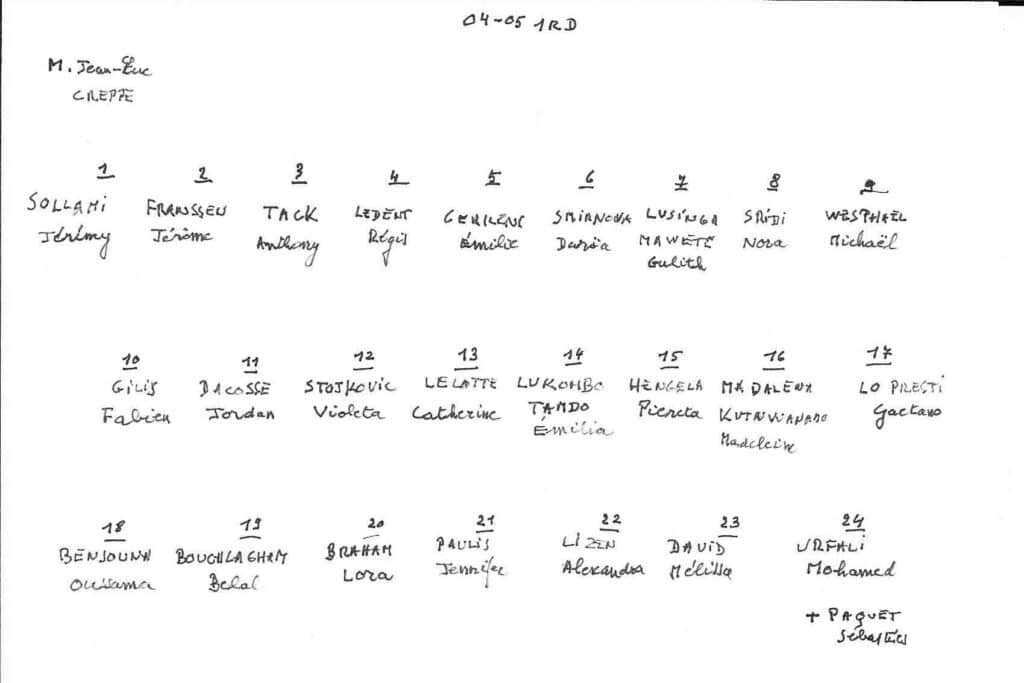 04-05 1RD
M. Jean-Luc
CREPPE
1 2 3 4 5 6 7 8 9
SOLLAMI FRANSSEN TACK LEDENT GERKENS SMIRNOVA LUSINGA SRIDI WESPHAEL
Jérémy Jérôme Anthony Régis Émilie Daria MAWETE Nora Michaël
Gulith
10 11 12 13 14 15 16 17
GILIS DACOSSE STOJKOVIC LELATTE LUKOMBO HENGELA MADALENA LO PRESTI
Fabien Jordan Violeta Catherine TANDO Piereta Gaetano
Émilia Madeleine
18 19 20 21 22 23 24
BENJOUNA BOUGHLAGHAM BRAHAM PAULIS LIZEN DAVID URFALI
Ouissama Belal Lora Jennifer Alexandra Mélissa Mohamed
+ PAQUET
Sébastien